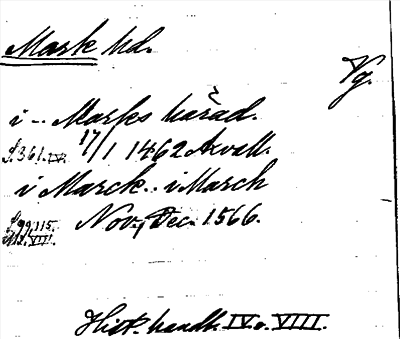 Mark hd.
Vg.
i -- Marks härad.
S. 361. IV. 17/1 1462 Axvall.
i Marck.. i March
S. 99, 115. Nov., Dec. 1566.
VIII.
Hist. handl. IV o. VIII.